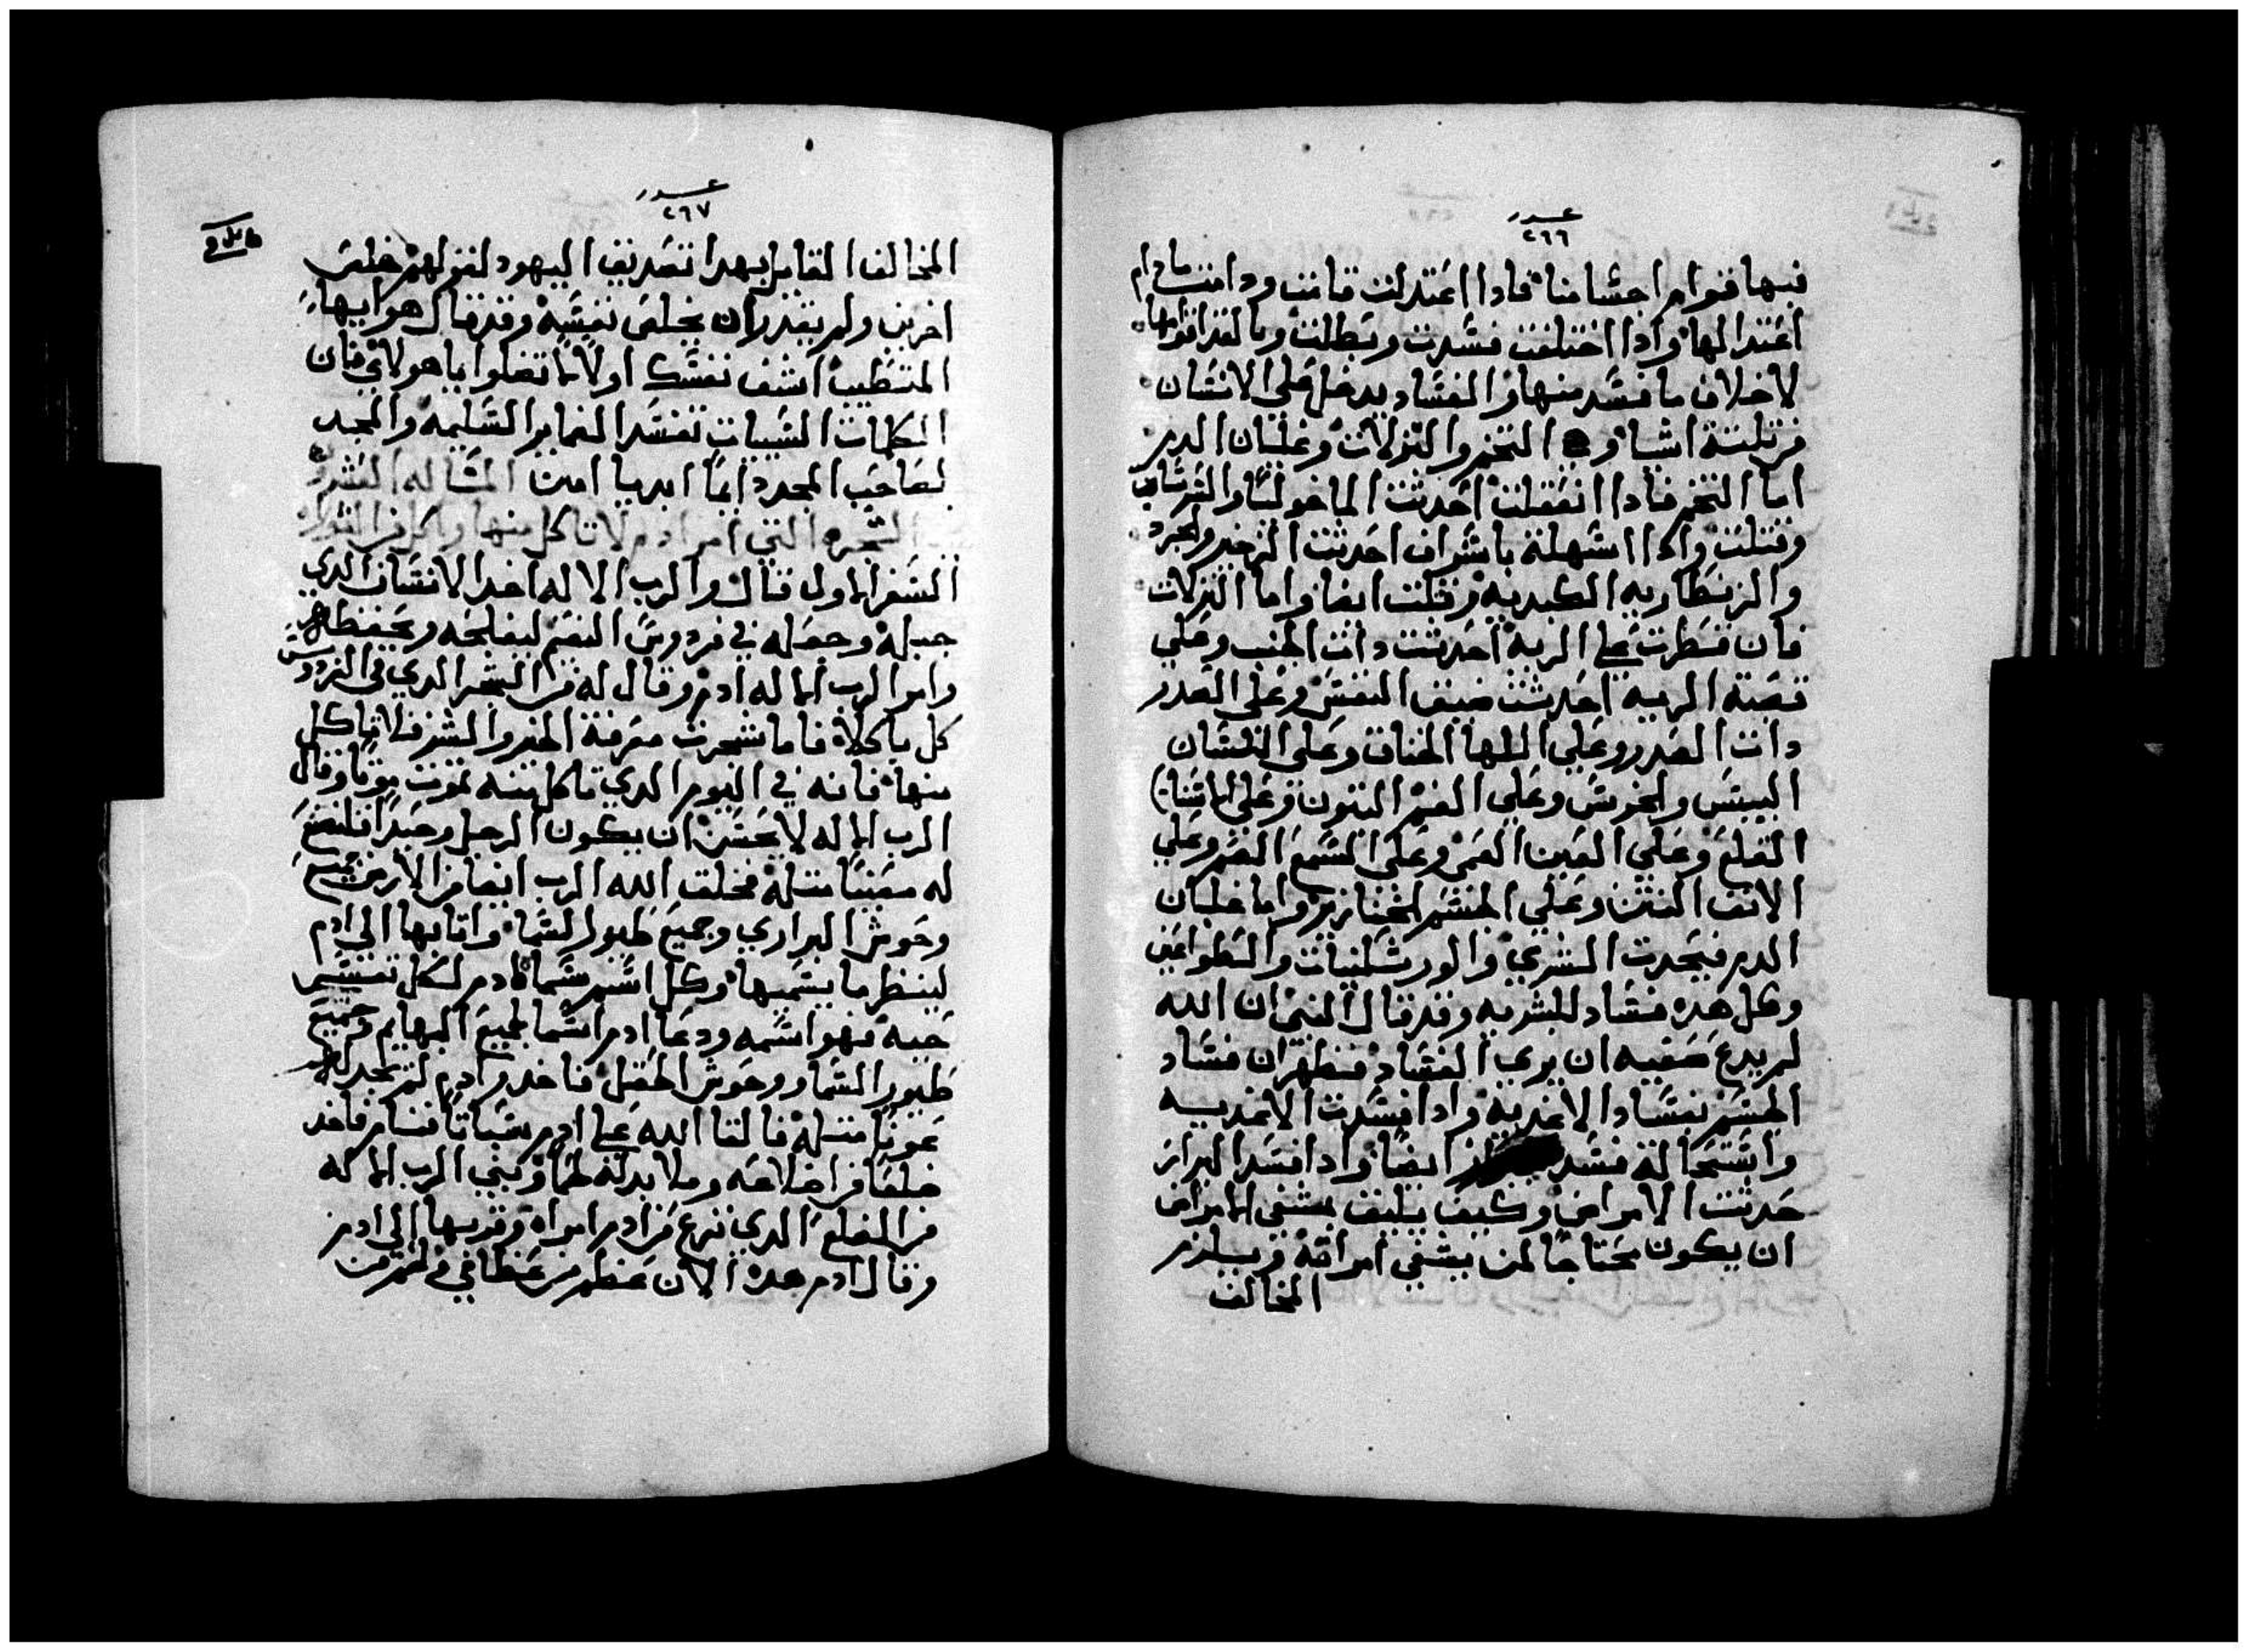 عدد
٢٦٦
فيها قوام اجسامنا فادا اعتدلت قامت ودامت مادام
اعتدالها وادا اختلفت فسدت وبطلت وبالقدا قوامها
لاخلاف ما فسد منها والفساد يدخل على الانسان
من تلتة اشيا وهي التخم والنزلات وغليان الدم
اما التخم فادا انعقلت احدتت الماخوليا والسرسام
وقتلت وادا اسهلت باسراف احدتت الزحير والجرد
والزنطاريه الكبديه وقتلت ايضا واما النزلات
فان قطرت علي الريه احدتت دات الجنب وعلي
قصبة الريه احدتت ضيق النفس وعلى الصدر
دات الصدر وعلي اللها الخناق وعلى اللسان
اليبس والخرس وعلي الفم النتون وعلى الاسنان
القلع وعلي العين العمى وعلى السمع الصمم وعلي
الانف النتن وعلي الجسم الخنازير واما غليان
الدم فيحدت الشري والورشكنيات والطواعين
وكل هده فساد للبشريه وقد قال النبي ان الله
لم يدع صفيه ان يري الفساد فنظهر ان فساد
الجسم بفساد الاغديه وادا فسدت الاغديه
واستحالة فسد ايضا وادا فسد البراز
حدتت الامراض وكيف يليق بمشفي الامراض
ان يكون محتاجا لمن يشفي امراضه ويلزم
المخالف
عدد
٢٦٧
المخالف القايل بهدا تصديق اليهود لقولهم خلص
اخرين ولم يقدر ان يخلص نفسه وقد قال هو ايها
المتطبب اشف نفسك اولا لا تضلوا يا هولاي فان
الكلمات السييات تفسد الضماير السليمه والمجد
لصاحب المجد دايما ابديا امين المساله العشرون
الشجره التي امر ادم لا تاكل منها واكل في التوراه
السفر الاول قال والرب الاله اخد الانسان الدي
جبله وجعله في فردوس النعيم ليفلحه ويحفظه
وامر الرب الاله ادم وقال له من الشجر الدي في الفردوس
كل ياكلا فاما شجرت معرفة الخير والشر فلا تاكل
منها فانه في اليوم الدي تاكل منه تموت موتا وقال
الرب الاله لا يحسن ان يكون الرجل وحيدا فلنصنع
له معينا متله فخلق الله الرب ايضا من الارض جميع
وحوش البراري وجميع طيور السما واتا بها الي ادم
لينظر ما يسميها وكل اسم سماه ادم لكل نفس
حيه فهو اسمه ودعا ادم اسما لجميع البهايم وجميع
طيور السما ووحوش الحقل فاخد وادم لم يجد له
عونا متله فالقا الله علي ادم سباتا فنام فاخد
ضلعا من اضلاعه وملا بدله لحما وبني الرب الاله
من الضلع الدي نزع من ادم امراه وقربها الي ادم
وقال ادم هده الان عظم من عظامي ولحم من